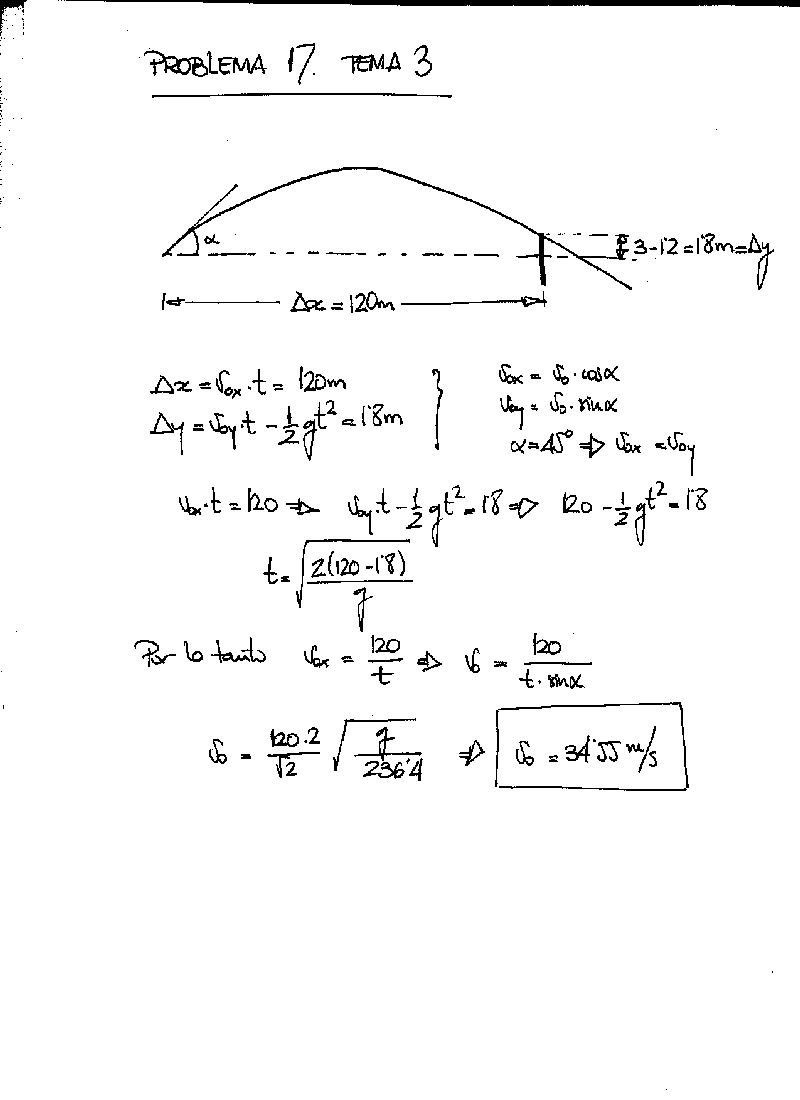 PROBLEMA 17. TEMA 3
α
3-1'2=1'8m=Δy
Δx = 120m
Δx = v₀ₓ·t = 120m
Δy = v₀y t - 1/2 gt² = 1'8m
v₀ₓ = v₀·cosα
v₀y = v₀·sinα
α=45° ⇒ v₀ₓ = v₀y
v₀ₓ·t = 120 ⇒ v₀y·t - 1/2 gt² = 1'8 ⇒ 120 - 1/2 gt² = 1'8
t = √(2(120-1'8)/g)
Por lo tanto v₀ₓ = 120/t ⇒ v₀ = 120/(t·sinα)
v₀ = 120·2/√2 √(g/236'4) ⇒ v₀ = 34'55 m/s